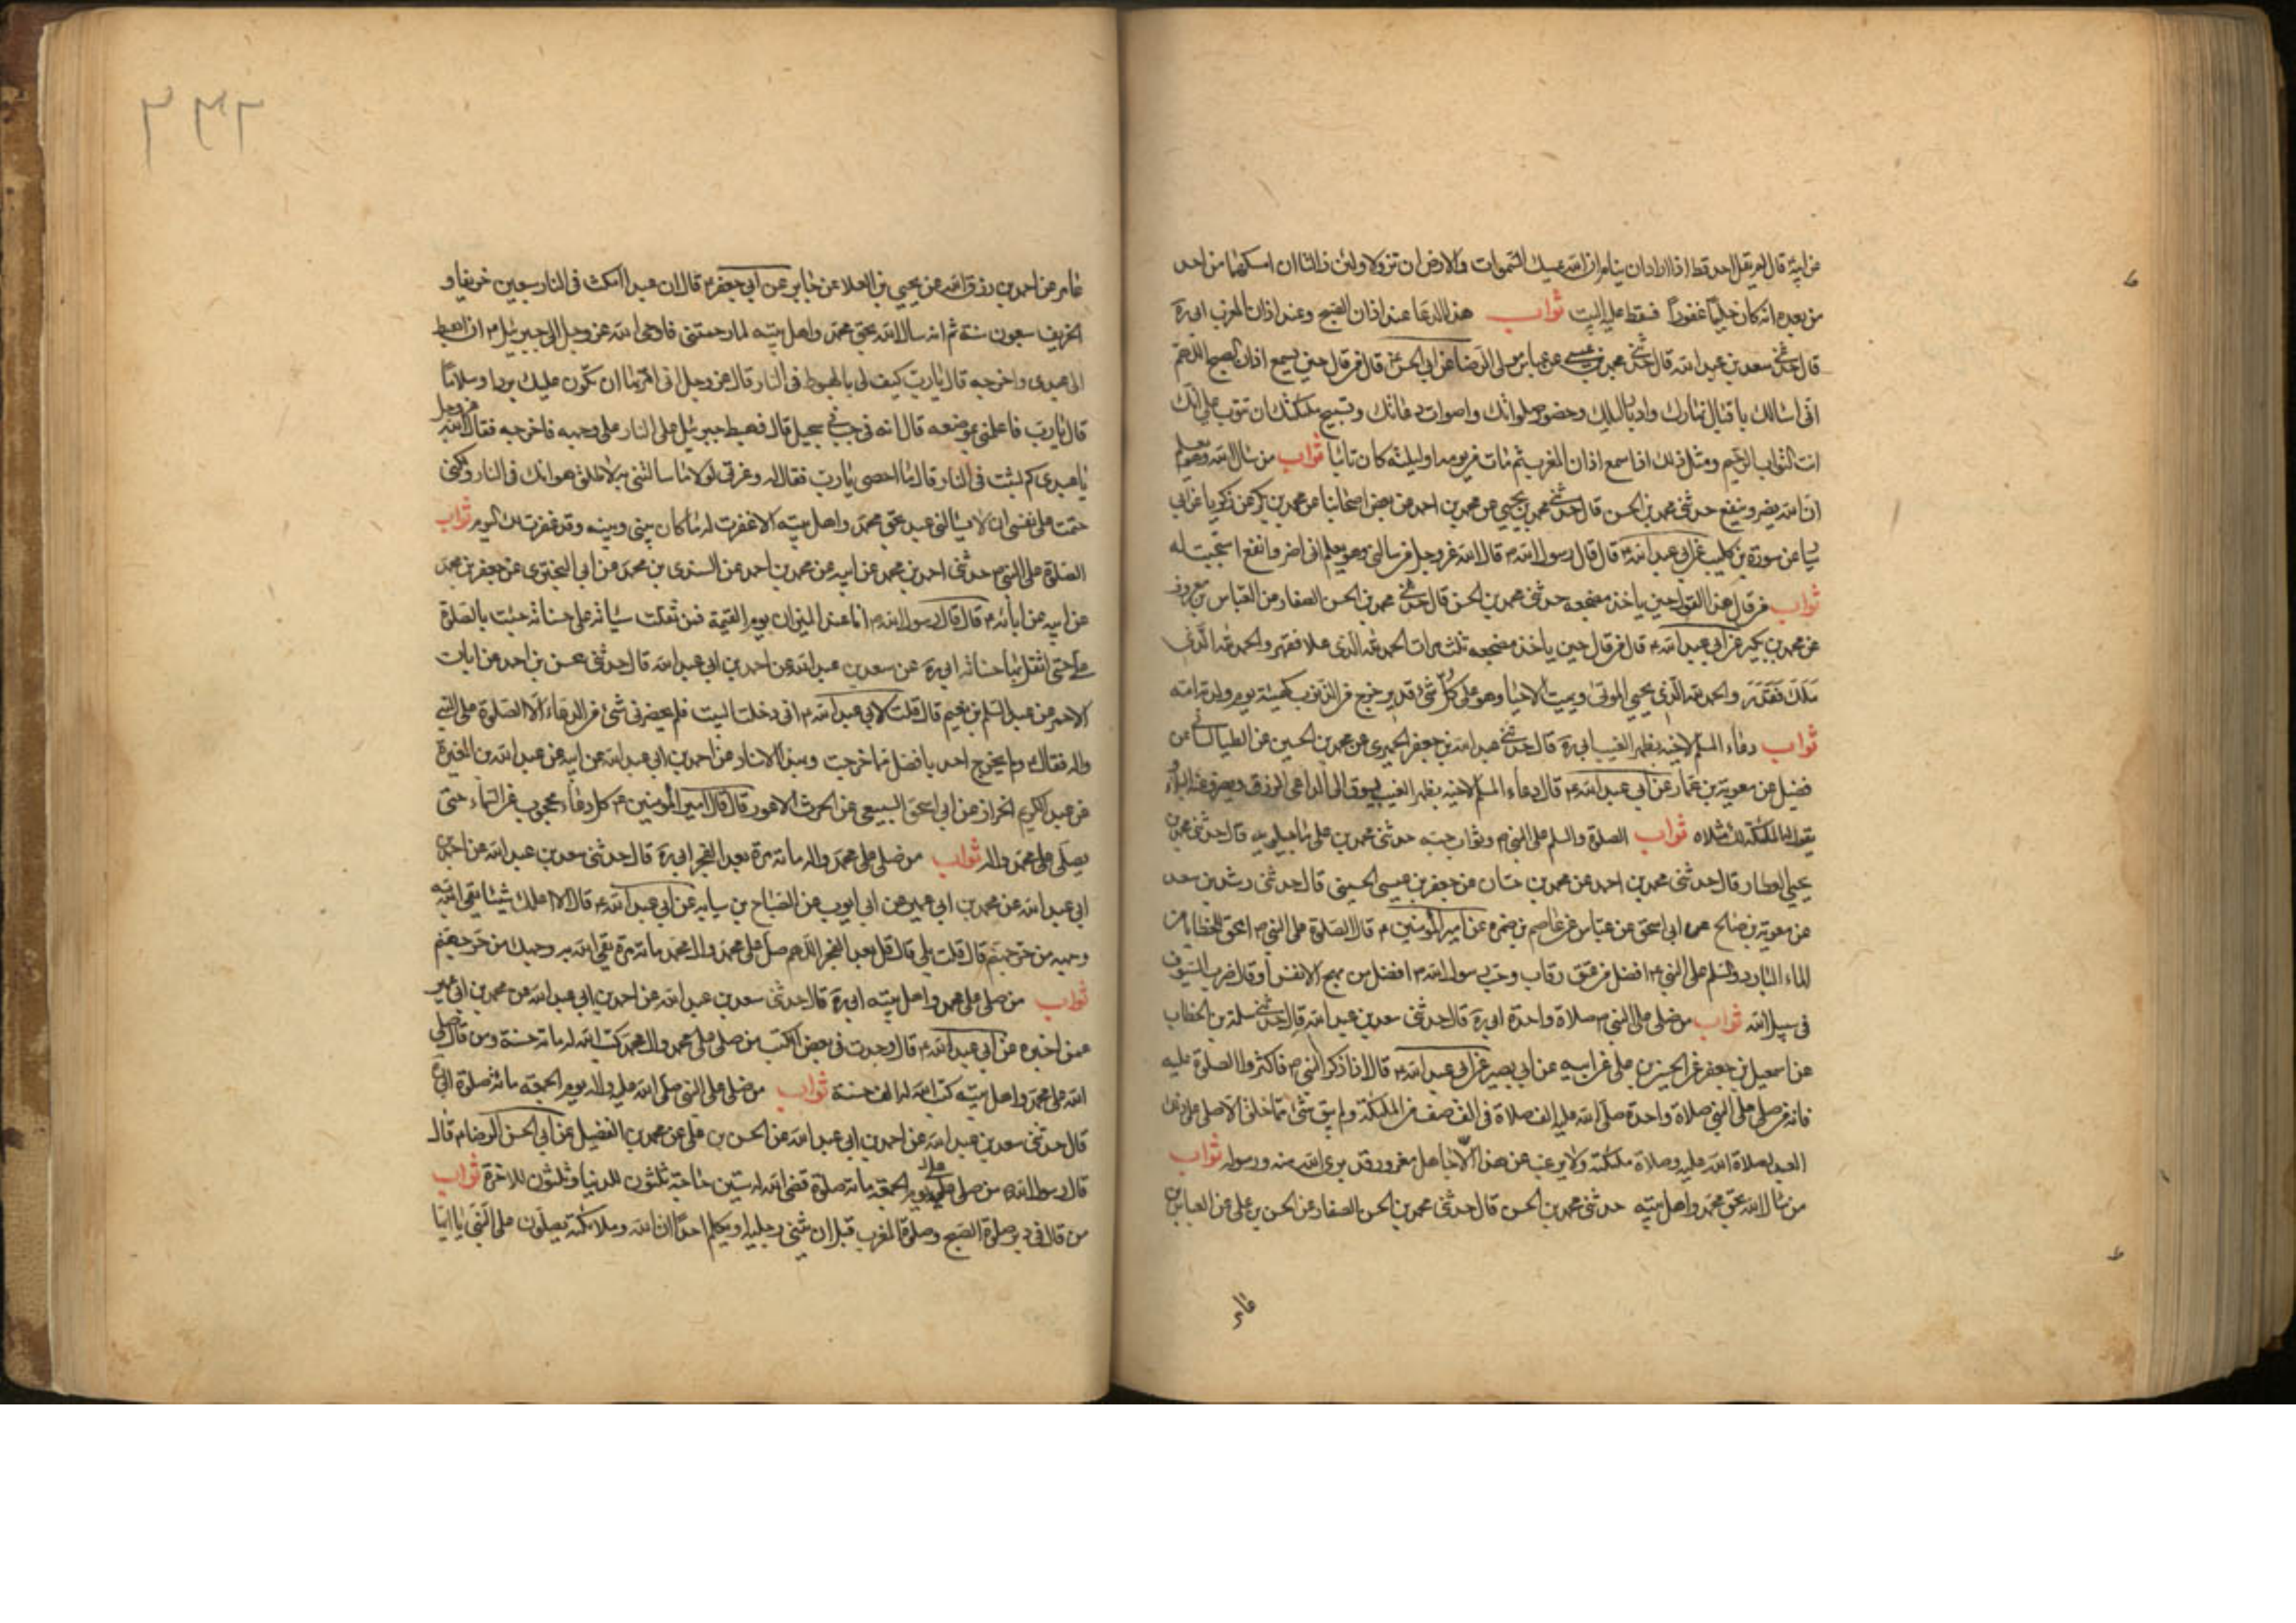 من ابيه قال لم يقل احد قط اذا اراد ان ينام ان الله يمسك السموات والارض ان تزولا ولئن زالتا ان امسكهما من احد
من بعده انه كان حليما غفورا فسقط عليه البيت ثواب هذا الدعا عند اذان الصبح وعند اذان المغرب ابي ره
قال حدثني سعد بن عبد الله قال حدثني محمد بن عيسى عن عباس مولى الرضا عن ابي الحسن قال من قال حين يسمع اذان الصبح اللهم
اني اسالك باقبال نهارك وادبار ليلك وحضور صلواتك واصوات دعاتك وتسبيح ملئكتك ان تتوب علي انك
انت التواب الرحيم ومثل ذلك اذا سمع اذان المغرب ثم مات من يومه او ليلته كان تائبا ثواب من سال الله وهو يعلم
ان الله يضر وينفع حدثني محمد بن الحسن قال حدثني محمد بن يحيى عن محمد بن احمد عن بعض اصحابنا عن محمد بن بكر عن زكريا عن ابي
عن سورة بن كليب عن ابي عبد الله ع قال قال رسول الله ص قال الله عز وجل من سالني وهو يعلم اني اضر وانفع استجبت له
ثواب من قال هذا القول حين ياخذ مضجعه حدثني محمد بن الحسن قال حدثني محمد بن الحسن الصفار عن العباس بن معروف
عن محمد بن بكير عن ابي عبد الله ع قال من قال حين ياخذ مضجعه ثلث مرات الحمد لله الذي علا فقهر والحمد لله الذي
ملك فقدر والحمد لله الذي يحيي الموتى ويميت الاحيا وهو على كل شئ قدير خرج من الذنوب كهيئة يوم ولدته امه
ثواب دعاء المسلم لاخيه بظهر الغيب ابي ره قال حدثني عبد الله بن جعفر الحميري عن محمد بن الحسين عن الطيالسي عن
فضيل عن معوية بن عمار عن ابي عبد الله ع قال دعاء المسلم لاخيه بظهر الغيب يسوق الى الداعي الرزق ويصرف عنه البلاء
يقول له الملئكة لك مثلاه ثواب الصلوة والسلم على النبي ص وثواب حبه حدثني محمد بن علي ماجيلويه قال حدثني محمد بن
يحيى العطار قال حدثني محمد بن احمد عن محمد بن حسان عن جعفر بن عيسى الحسيني قال حدثني رشد بن سعد
عن معوية بن صالح عن ابي اسحق عن عباس عن عاصم بن ضمره عن امير المؤمنين ع قال الصلوة على النبي ص امحق للخطايا من
الماء البارد والسلم على النبي ص افضل من عتق رقاب وحب رسول الله ص افضل من مهج الانفس او قال ضرب السيوف
في سبيل الله ثواب من صلى على النبي ص صلاة واحدة ابي ره قال حدثني سعد بن عبد الله قال حدثني سلمة بن الخطاب
عن اسمعيل بن جعفر عن الحسين بن علي عن ابيه عن ابي بصير عن ابي عبد الله ع قال اذا ذكر النبي ص فاكثروا الصلوة عليه
فانه من صلى على النبي صلاة واحدة صلى الله عليه الف صلاة في الف صف من الملئكة ولم يبق شئ مما خلق الا صلى على ذلك
العبد لصلاة الله عليه وصلاة ملئكته ولا يرغب عن هذا الا جاهل مغرور قد برئ الله منه ورسوله ثواب
من سال الله بحق محمد واهل بيته حدثني محمد بن الحسن قال حدثني محمد بن الحسن الصفار عن الحسن بن علي عن العباس بن
عامر
٢٣٢
عامر عن احمد بن رزق الله عن يحيى بن العلا عن جابر عن ابي جعفر ع قال ان عبدا مكث في النار سبعين خريفا و
الخريف سبعون سنة ثم انه سال الله بحق محمد واهل بيته لما رحمتني فاوحى الله عز وجل الى جبرئيل ع ان اهبط
الى عبدي واخرجه قال يا رب كيف لي بالهبوط في النار قال عز وجل اني امرتها ان تكون عليك بردا وسلاما
قال يا رب فما علمي بموضعه قال انه في جب في سجيل قال فهبط جبرئيل على النار على وجهه فاخرجه فقال الله عز وجل
يا عبدي كم لبثت في النار قال ما احصي يا رب فقال له وعزتي لولا ما سالتني به لاطلت هوانك في النار ولكني
حتمت على نفسي ان لا يسالني عبد بحق محمد واهل بيته الا غفرت له ما كان بيني وبينه وقد غفرت لك اليوم ثواب
الصلوة على النبي ص حدثني احمد بن محمد عن ابيه عن محمد بن احمد عن السندي بن محمد عن ابي البختري عن جعفر بن محمد
عن ابيه عن ابائه ع قال قال رسول الله ص انا عند الميزان يوم القيمة فمن ثقلت سيأته على حسناته جئت بالصلوة
علي حتى اثقل بها حسناته ابي ره عن سعد بن عبد الله عن احمد بن ابي عبد الله قال حدثني محسن بن احمد عن ابان
الاحمر عن عبد السلم بن نعيم قال قلت لابي عبد الله ع اني دخلت البيت فلم يحضرني شئ من الدعاء الا الصلوة على النبي
واله فقال ع ولم يخرج احد بافضل مما خرجت وبهذا الاسناد عن احمد بن ابي عبد الله عن ابيه عن عبد الله بن المغيرة
عن عبد الكريم الخزاز عن ابي اسحق السبيعي عن الحرث الاعور قال قال امير المؤمنين ع كل دعاء محجوب عن السماء حتى
يصلى على محمد واله ثواب من صلى على محمد واله مائة مرة بعد الفجر ابي ره قال حدثني سعد بن عبد الله عن احمد بن
ابي عبد الله عن محمد بن ابي عمير عن ابي ايوب عن الصباح بن سيابه عن ابي عبد الله ع قال الا اعلمك شيئا يقي الله به
وجهك من حر جهنم قال قلت بلى قال قل بعد الفجر اللهم صل على محمد وال محمد مائة مرة يقي الله به وجهك من حر جهنم
ثواب من صلى على محمد واهل بيته ابي ره قال حدثني سعد بن عبد الله عن احمد بن ابي عبد الله عن محمد بن ابي عمير
عمن اخبره عن ابي عبد الله ع قال وجدت في بعض الكتب من صلى على محمد وال محمد كتب الله له مائة حسنة ومن قال صلى
الله على محمد واهل بيته كتب الله له الف حسنة ثواب من صلى على النبي صلى الله عليه واله يوم الجمعة مائة صلوة ابي ره
قال حدثني سعد بن عبد الله عن احمد بن ابي عبد الله عن الحسن بن علي عن محمد بن الفضيل عن ابي الحسن الرضا ع قال
قال رسول الله ص من صلى علي يوم الجمعة مائة صلوة قضى الله له ستين حاجة ثلثون للدنيا وثلثون للاخرة ثواب
من قال في دبر صلوة الصبح وصلوة المغرب قبل ان يثني رجليه او يكلم احدا ان الله وملائكته يصلون على النبي يا ايها